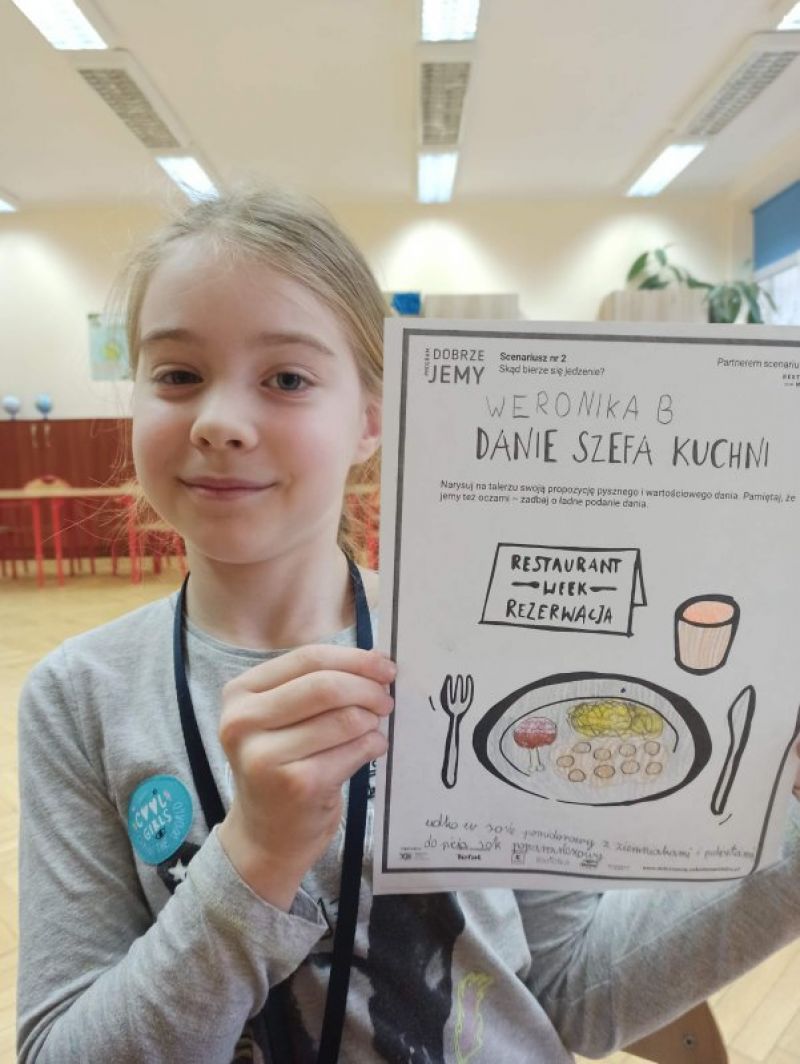 PROGRAM
DOBRZE
JEMY
Scenariusz nr 2
Skąd bierze się jedzenie?
Partnerem scenariu
WERONIKA B
DANIE SZEFA KUCHNI
Narysuj na talerzu swoją propozycję pysznego i wartościowego dania. Pamiętaj, że
jemy też oczami – zadbaj o ładne podanie dania.
RESTAURANT
WEEK
REZERWACJA
udko w sosie pomidorowy z ziemniakami i
do picia sok pomarańczowy
COOL
GIRLS